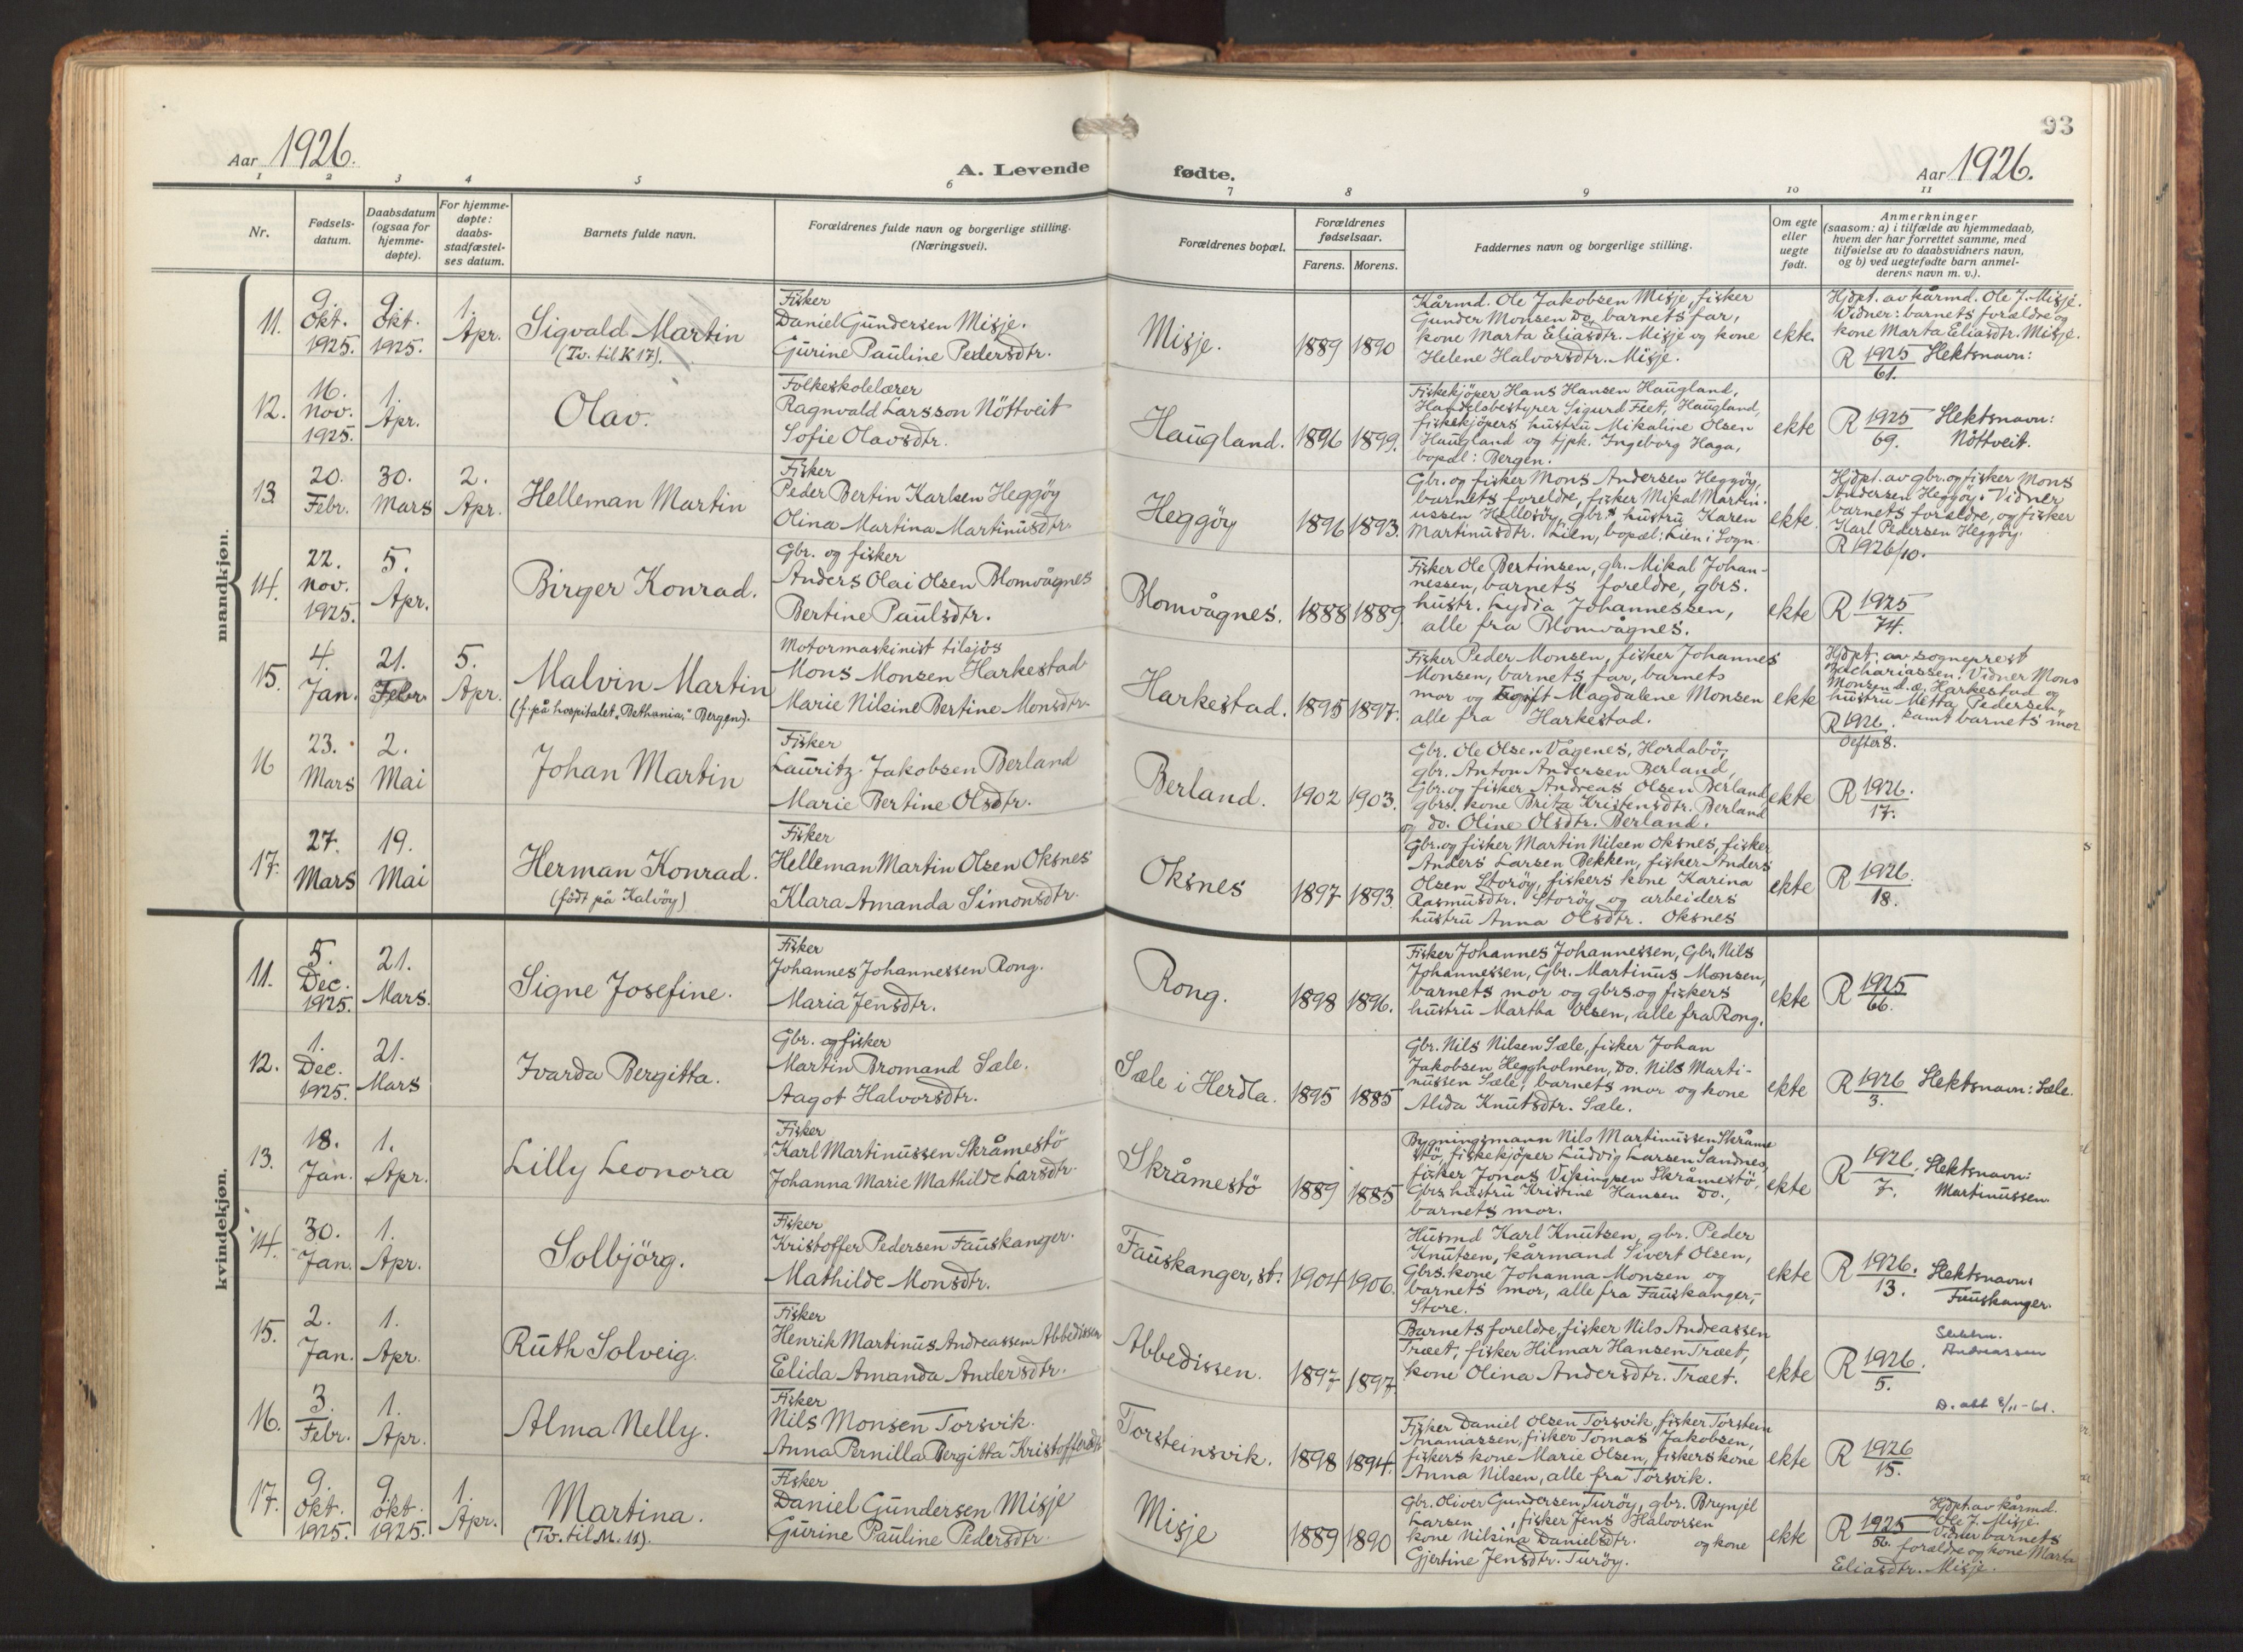 93
Aar 1926.
A. Levende fødte.
Aar 1926.
1 2 3 4 5 6 7 8 9 10 11
Nr.
Fødsels-
datum.
Daabsdatum
(ogsaa for
hjemme-
døpte).
For hjemme-
døpte:
daabs-
stadfæstel-
ses datum.
Barnets fulde navn.
Forældrenes fulde navn og borgerlige stilling.
(Næringsvei).
Forældrenes bopæl.
Forældrenes
fødselsaar.
Farens. Morens.
Faddernes navn og borgerlige stilling.
Om egte
eller
uegte
født.
Anmerkninger
(saasom: a) i tilfælde av hjemmedaab,
hvem der har forrettet samme, med
tilføielse av to daabsvidners navn,
og b) ved uegtefødte barn anmel-
derens navn m. v.).
mandkjøn.
11.
9.
Okt.
1925.
9.
Okt.
1925.
1.
Apr.
Sigvald Martin
(Tv. til K 17).
Fisker
Daniel Gundersen Misje.
Gurine Pauline Pedersdtr.
Misje.
1889
1890
Kårmd. Ole Jakobsen Misje, fisker
Gunder Monsen Do, barnets far,
kone Marta Eliasdtr. Misje og kone
Helene Halvorsdtr. Misje.
ekte.
Hjdpt. av kårmd. Ole J. Misje.
Vidner: barnets forældre og
kone Marta Eliasdtr. Misje.
R 1925 Slektsnavn:
61.
12.
16.
Nov.
1925.
1.
Apr.
Olav.
Folkeskolelærer
Ragnvald Larsson Nöttveit
Sofie Olavsdtr.
Haugland.
1896
1899.
Fiskekjöper Hans Hansen Haugland,
Handelsbestyrer Sigurd Feet, Haugland,
fiskekjöpers hustru Mikaline Olsen
Haugland og tjpk. Ingeborg Haga,
bopæl: Bergen.
ekte
R 1925 Slektsnavn:
69. Nöttveit.
13.
20.
Febr.
30.
Mars
2.
Apr.
Helleman Martin
Fisker
Peder Bertin Karlsen Heggöy
Olina Martina Martinusdtr.
Heggöy
1896
1893.
Gbr. og fisker Mons Andersen Heggöy,
barnets foreldre, fisker Mikal Martin-
ussen Hellesöy, gbrs hustru Karen
Martinusdtr. Lien, bopæl: Lien i Sogn.
ekte.
Hjdpt. av gbr. og fisker Mons
Andersen Heggöy. Vidner
barnets forældre, og fisker
Karl Pedersen Heggöy.
R 1926/10.
14.
22.
Nov.
1925.
5.
Apr.
Birger Konrad.
Gbr. og fisker
Anders Olai Olsen Blomvågnes
Bertine Paulsdtr.
Blomvågnes.
1888
1889.
Fisker Ole Bertinsen, gbr. Mikal Johan-
nessen, barnets foreldre, gbrs.
hustr. Lydia Johannessen,
alle fra Blomvågnes.
ekte
R 1925
74.
15.
4.
Jan.
21.
Febr.
5.
Apr.
Malvin Martin
(f. på hospitalet „Bethania,” Bergen).
Motormaskinist tilsjös
Mons Monsen Harkestad
Marie Nilsine Bertine Monsdtr.
Harkestad.
1895
1897.
Fisker Peder Monsen, fisker Johannes
Monsen, barnets far, barnets
mor og Magdalene Monsen
alle fra Harkestad.
ekte
Hjdpt. av sogneprest
Zachariassen. Vidner Mons
Monsen d.æ. Harkestad og
hustru Metta Pedersen,
samt barnets mor
R 1926.
Oefter 8.
16
23.
Mars
2.
Mai
Johan Martin
Fisker
Lauritz Jakobsen Berland
Marie Bertine Olsdtr.
Berland.
1902
1903.
Gbr. Ole Olsen Vågenes, Hordabö,
gbr. Anton Andersen Berland,
Gbr. og fisker Andreas Olsen Berland,
gbrs. kone Brita Kristensdtr. Berland
og do. Oline Olsdtr. Berland.
ekte
R 1926.
17.
17.
27.
Mars
19.
Mai
Herman Konrad.
(född på Kalvöy)
Fisker
Helleman Martin Olsen Oksnes
Klara Amanda Simonsdtr.
Oksnes
1897
1893.
Gbr. og fisker Martin Nilsen Oksnes, fisker
Anders Larsen Bekken, fisker Anders
Olsen Storöy, fiskers kone Karina
Rasmusdtr. Storöy og arbeiders
hustru Anna Olsdtr. Oksnes
ekte
R 1926.
18.
kvindekjøn.
11.
5.
Dec.
1925.
21.
Mars.
Signe Josefine.
Fisker
Johannes Johannessen Rong.
Maria Jensdtr.
Rong.
1898
1896.
Fisker Johannes Johannessen, Gbr. Nils
Johannessen, Gbr. Martinus Monsen,
barnets mor og gbrs. og fiskers
hustru Martha Olsen, alle fra Rong.
ekte
R 1925
66.
12.
1.
Dec.
1925.
21.
Mars
Ivarda Bergitta.
Gbr. og fisker
Martin Bromand Sæle.
Aagot Halvorsdtr.
Sæle i Herdla.
1895
1885
Gbr. Nils Nilsen Sæle, fisker Johan
Jakobsen Heggholmen, Do. Nils Marti-
nussen Sæle, barnets mor og kone
Alida Knutsdtr. Sæle.
ekte
R 1926 Slektsnavn: Sæle.
3.
13.
18.
Jan.
1.
Apr.
Lilly Leonora
Fisker
Karl Martinussen Skråmestö
Johanna Marie Mathilde Larsdtr.
Skråmestö
1889
1885
Bygningsmann Nils Martinussen Skråme
stö, fiskekjöper Ludvig Larsen Sandnes,
fisker Jonas Vikingsen Skråmestö,
Gbrs hustru Kristine Hansen Do.,
barnets mor.
ekte
R 1926. Slektsnavn:
7. Martinussen.
14.
30.
Jan.
1.
Apr.
Solbjörg.
Fisker
Kristoffer Pedersen Fauskanger.
Mathilde Monsdtr.
Fauskanger, st.
1904
1906.
Husmd Karl Knutsen, gbr. Peder
Knutsen, kårmand Sivert Olsen,
Gbrs. kone Johanna Monsen og
barnets mor, alle fra Fauskanger,-
Store.
ekte
R 1926. Slektsnavn:
13. Fauskanger.
15.
2.
Jan.
1.
Apr.
Ruth Solveig.
Fisker
Henrik Martinus Andreassen Abbedissen
Elida Amanda Andersdtr.
Abbedissen.
1897
1897
Barnets foreldre, fisker Nils Andreassen
Træet, fisker Hilmar Hansen Træet,
kone Olina Andersdtr. Træet.
ekte
R 1926.
5.
Slektsn.
Andreassen
16.
3.
Febr.
1.
Apr.
Alma Nelly.
Fisker
Nils Monsen Torsvik.
Anna Pernilla Bergitta Kristoffersdtr
Torsteinsvik.
1898
1894.
Fisker Daniel Olsen Torsvik, fisker Torstein
Ananiassen, fisker Tomas Jakobsen,
fiskers kone Marie Olsen, fiskers kone
Anna Nilsen, alle fra Torsvik.
ekte
D. att 8/11-61.
R 1926
15.
17.
9.
Okt.
1925.
9.
Okt.
1925.
1.
Apr.
Martina.
(Tv. til M. 11).
Fisker
Daniel Gundersen Misje
Gurine Pauline Pedersdtr.
Misje
1889
1890
Gbr. Oliver Gundersen, Turöy, gbr. Brynjel
Larsen , fisker Jens Halvorsen
kone Nilsina Danielsdtr. og kone
Gjertine Jensdtr. Turöy.
ekte
R 1925
56.
Hjdpt. av kårmd.
Ole J. Misje.
Vidner barnets
forældre og kone Marta
Eliasdtr. Misje.